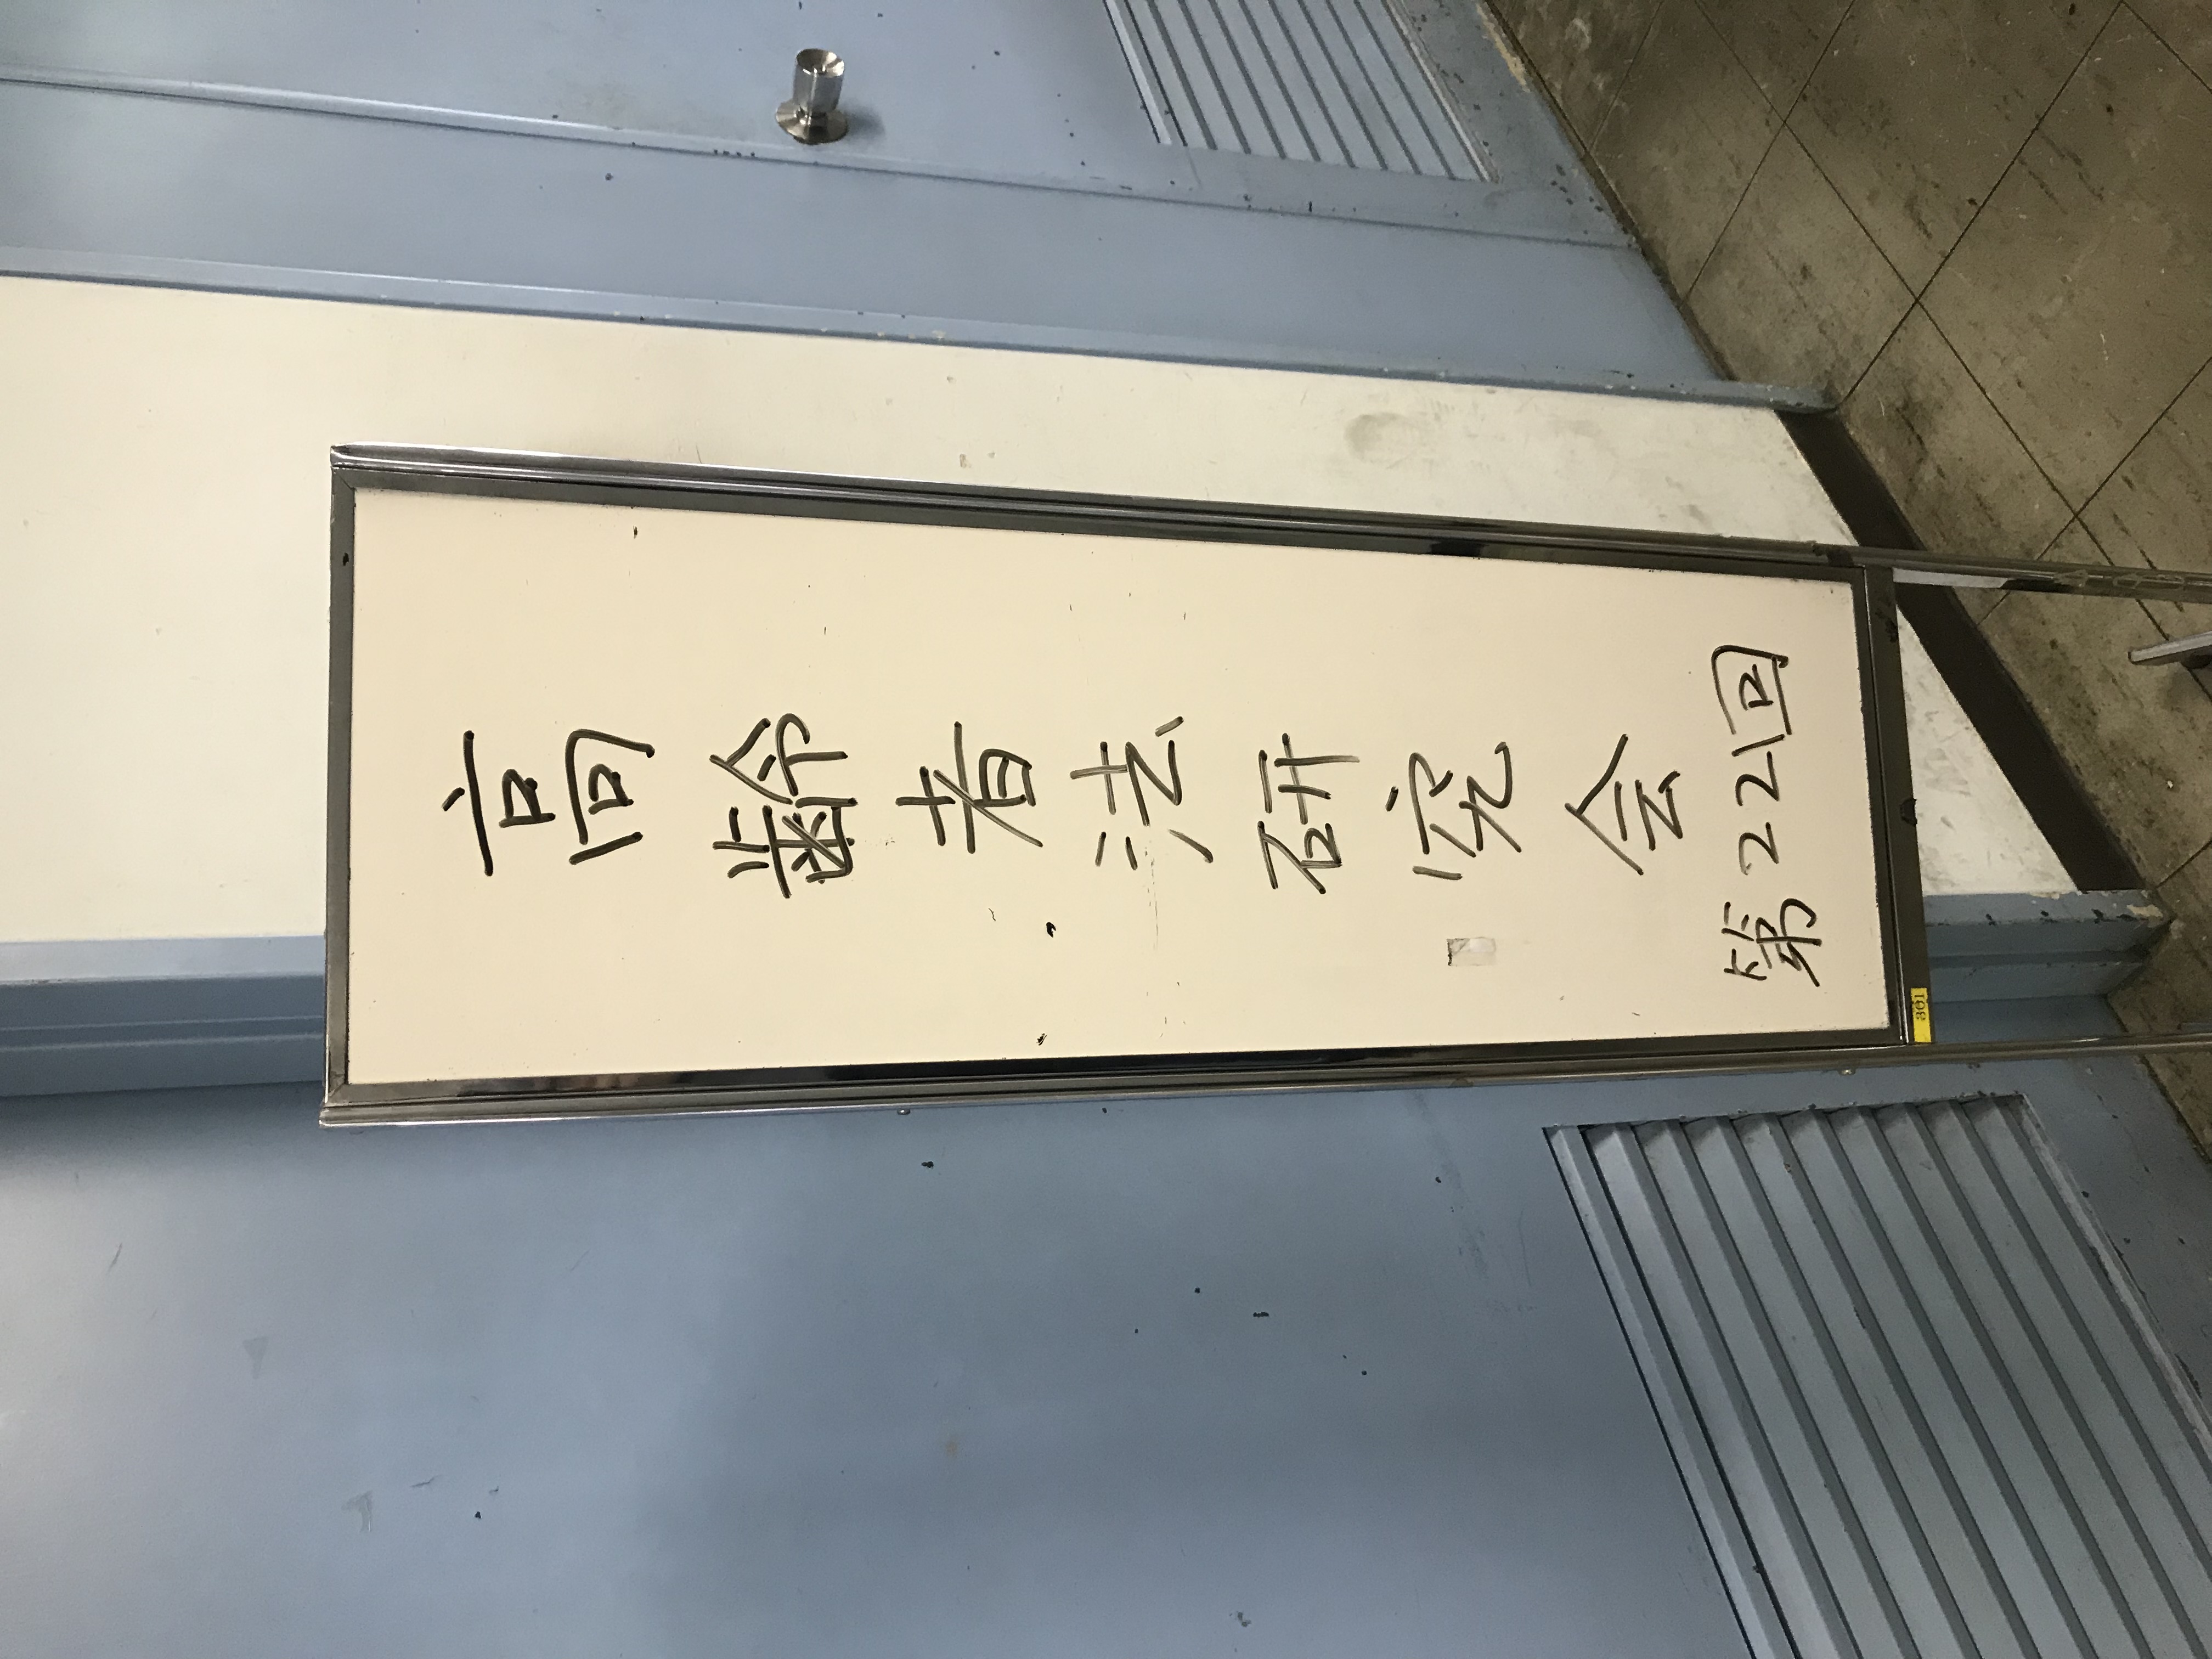 高齢者法研究会
第22回
301